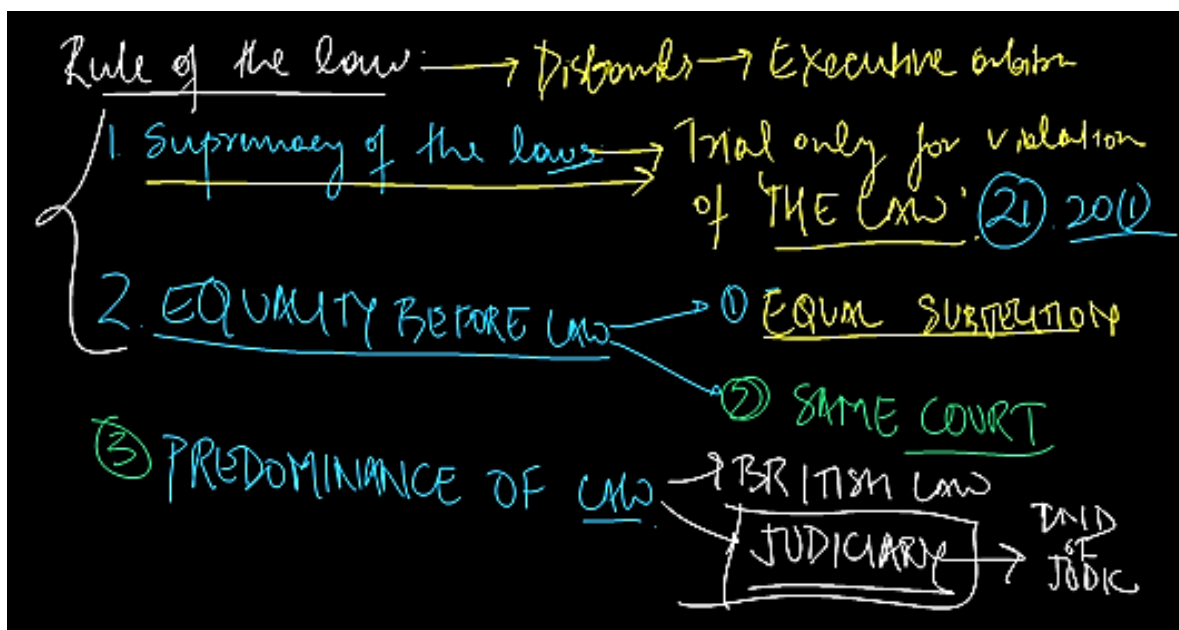 Rule of the law → Disbands → Executive
1. Supremacy of the laws → Trial only for violation
of 'THE LAW'. 21. 20(1)
2. EQUALITY BEFORE LAW → ① EQUAL
② SAME COURT
③ PREDOMINANCE OF LAW → BRITISH LAW
JUDICIARY → IND
OF
JUDIC